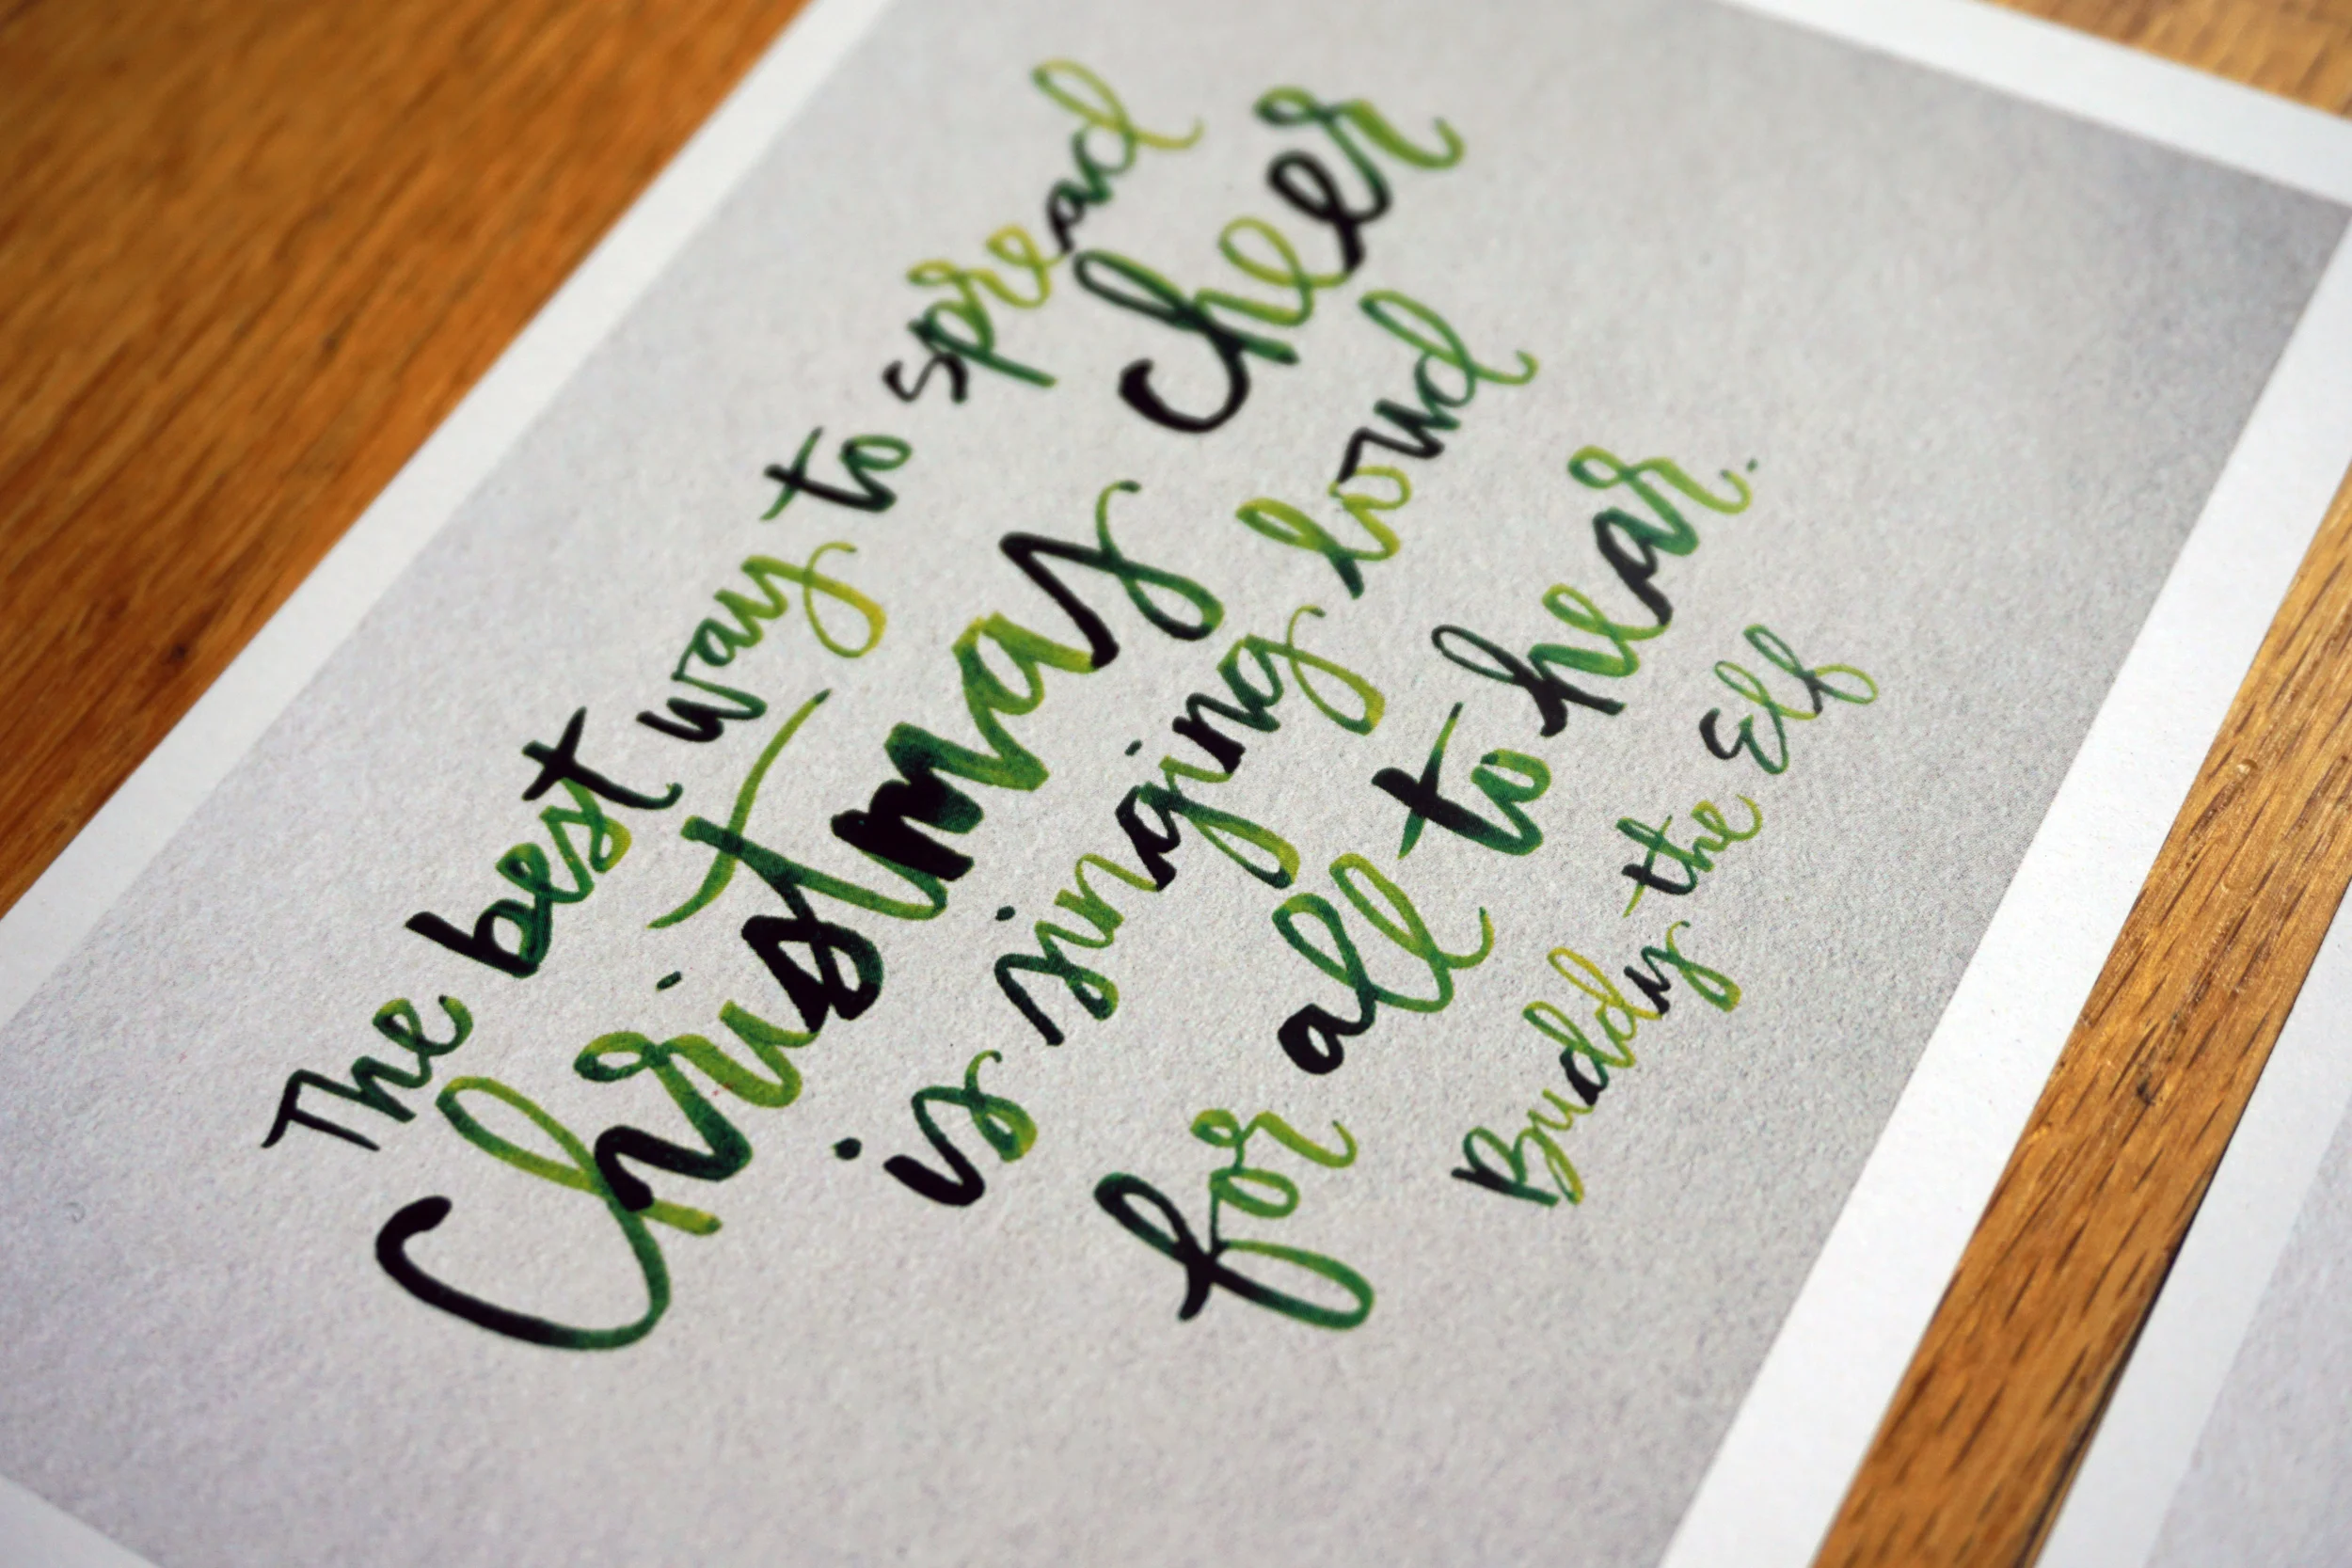 The best way to spread
Christmas cheer
is singing loud
for all to hear.
Buddy the Elf